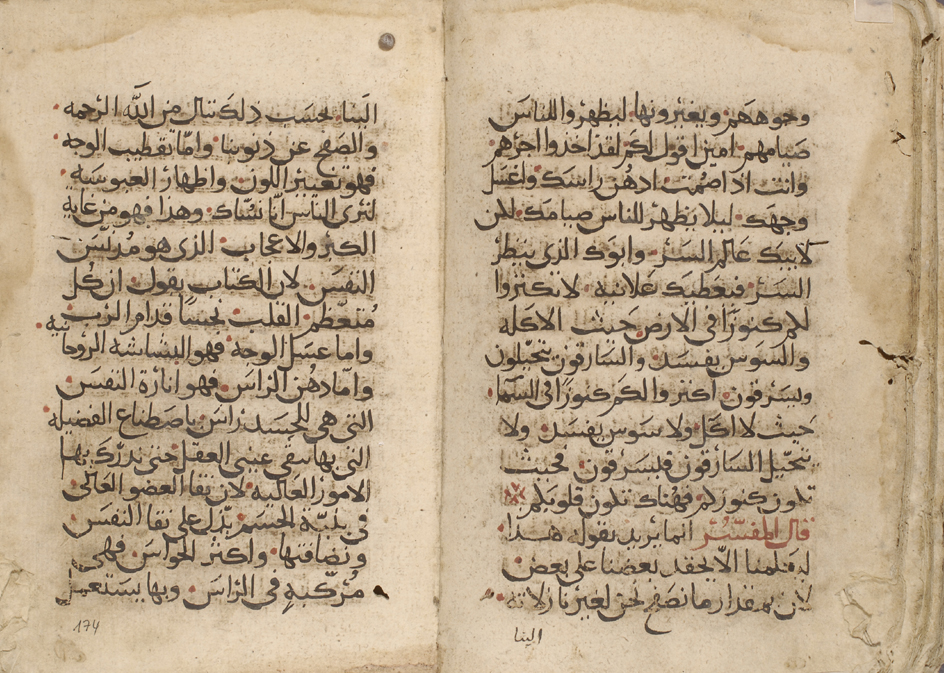 وجوههم ويغيرونها ليظهروا للناس
صيامهم امين اقول لكم لقد اخذوا اجرهم
وانت اذا صمت ادهن راسك واغسل
وجهك ليلا يظهر للناس صيامك لان
لابيك عالم السر وابوك الذي ينظر
السر فيعطيك علانية لا تكنزوا
لكم كنوزا في الارض حيث الاكله
والسوس يفسد والسارقون يتحيلون
ويسرقون اكنزوا لكم كنوزا في السما
حيث لا اكل ولا سوس يفسد ولا
يتحيل السارقون فيسرقون فحيث
تكون كنوزكم فهناك تكون قلوبكم
قال المفسر انما يريد بقوله هذا
ليعلمنا الا يحقد بعضنا على بعض
لان بمقدار ما نصفح نحن لغيرنا زلاته
الينا
الينا بحسب ذلك ننال من الله الرحمه
والصفح عن ذنوبنا واما تقطيب الوجه
فهو تغيير اللون واظهار العبوسه
لنري الناس انا نساك وهذا فهو من غاية
الكبر والاعجاب الذي هو مدلس
النفس لان الكتاب يقول ان كل
متعظم القلب نجسا قدام الرب
واما غسل الوجه فهو البشاشه الروحانيه
واما دهن الراس فهو انارة النفس
التي هي للجسد راس باصطناع الفضيله
التي بها ينقى عيني العقل حتى ندرك بها
الامور العاليه لان نقا العضو العالي
في بلية الجسم يدل على نقا النفس
ونضافتها واكثر الحواس فهي
مركبه في الراس وبها يستعمل
174